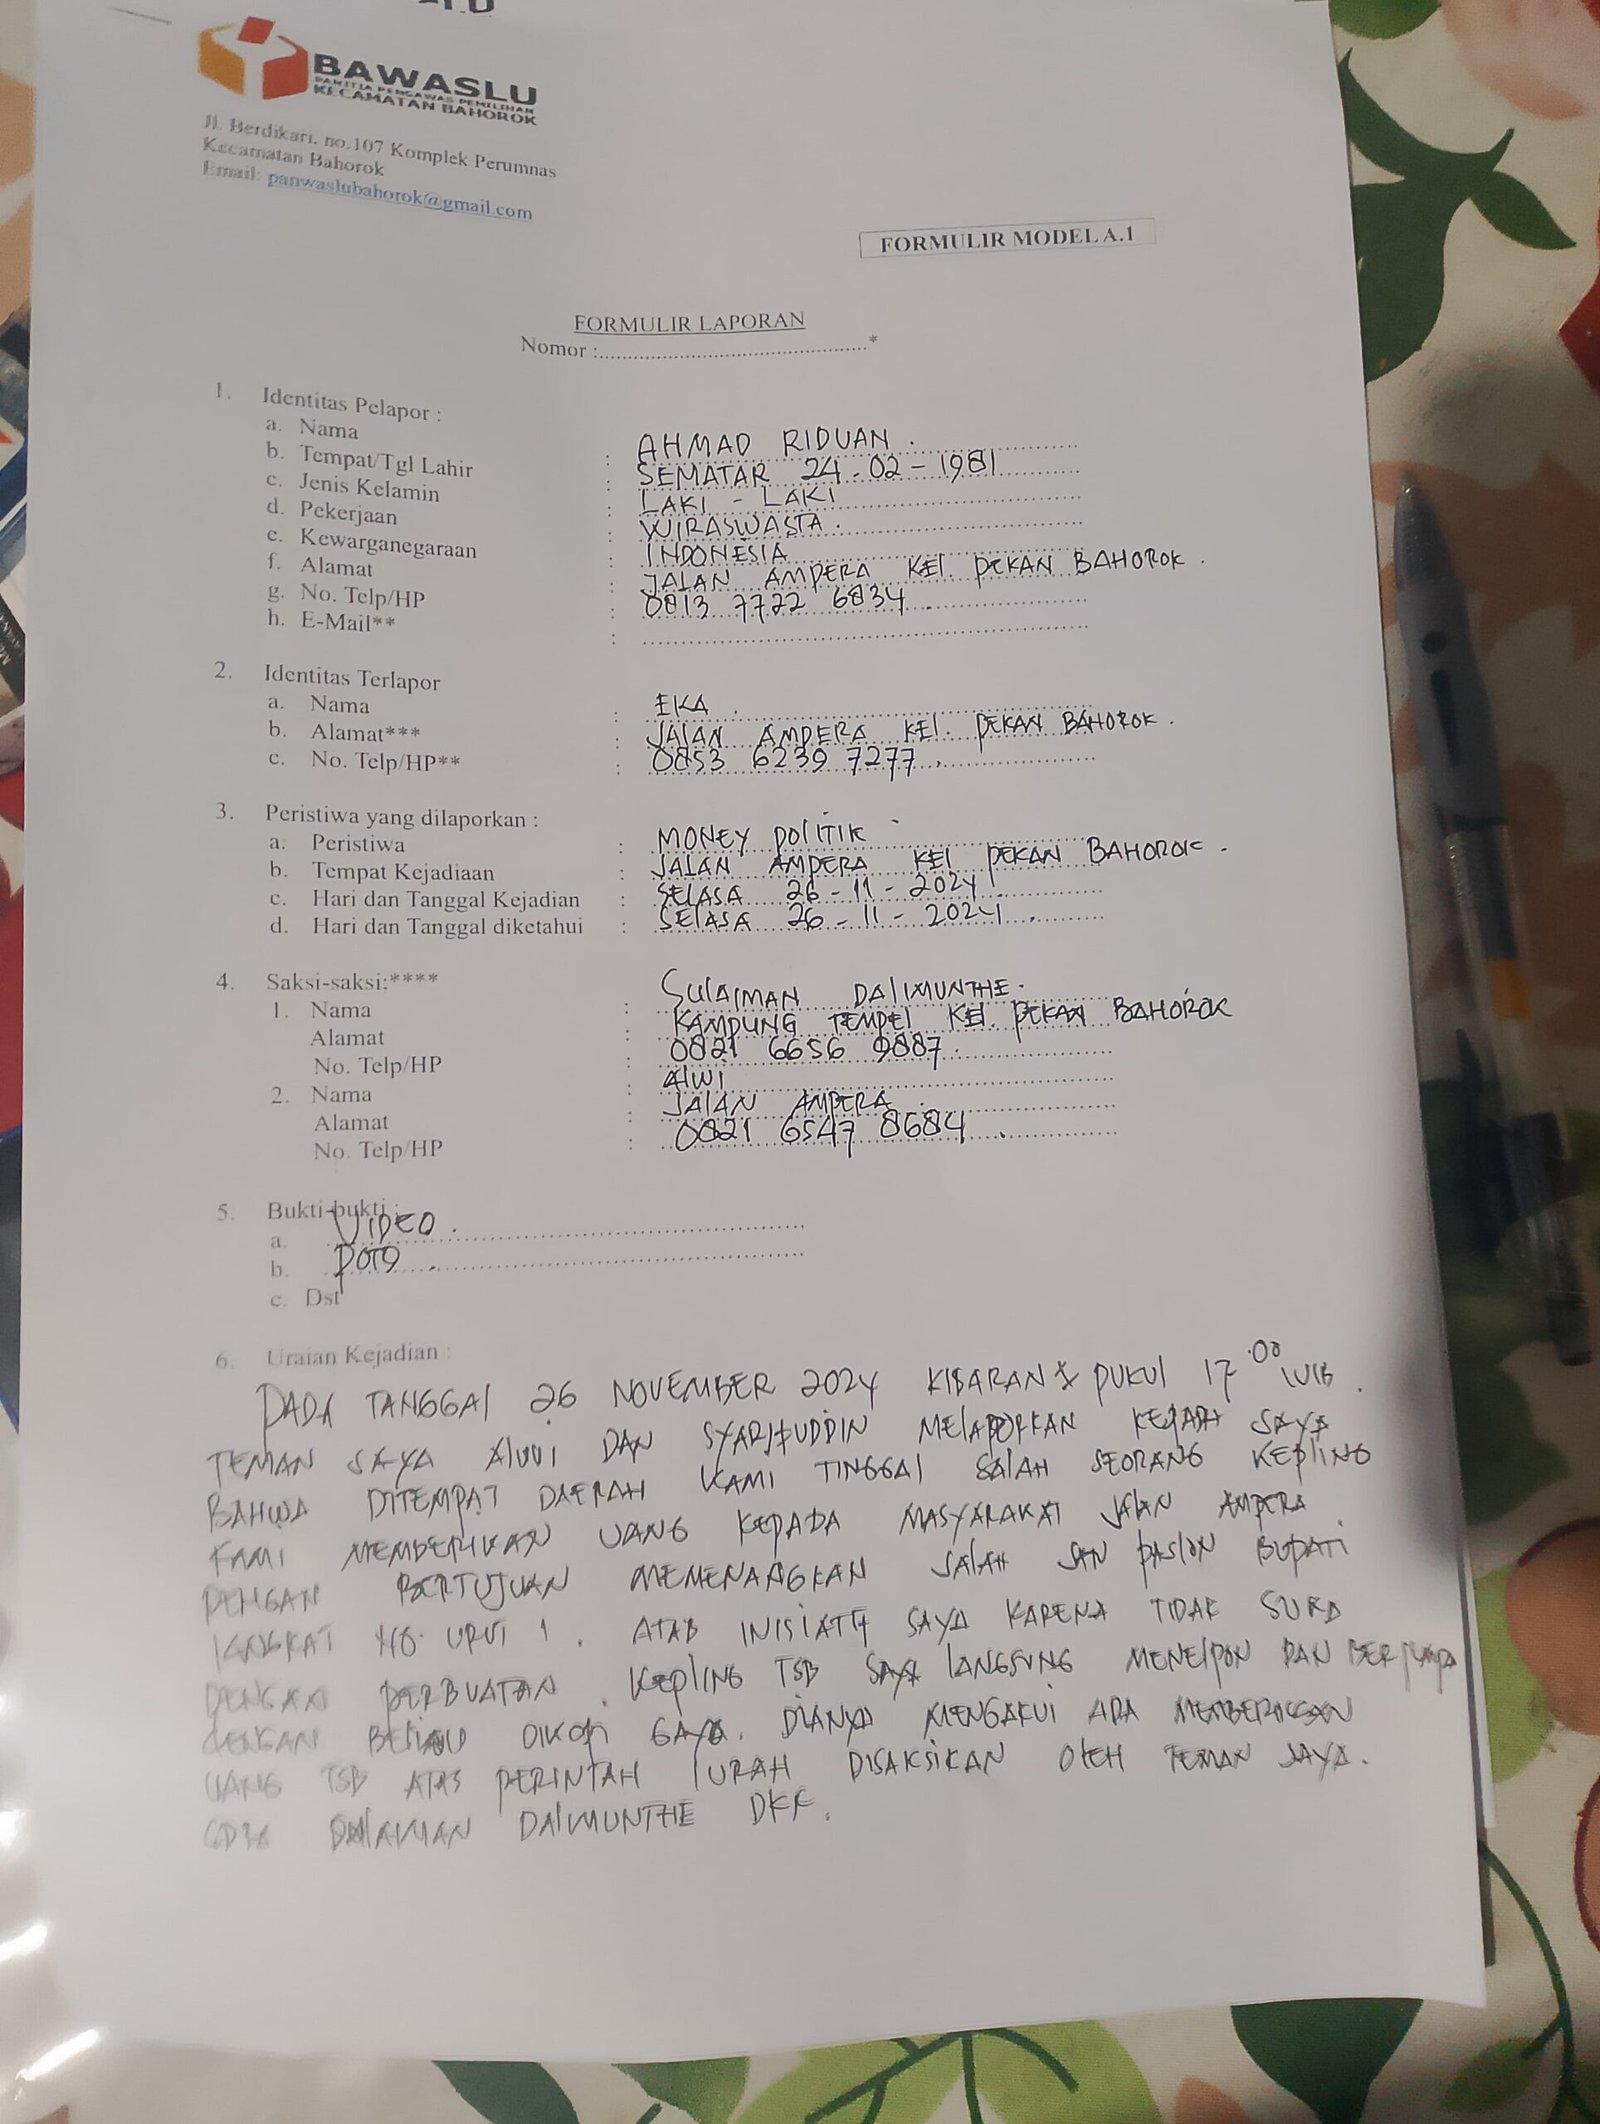 BAWASLU
PANITIA PENGAWAS PEMILIHAN
KECAMATAN BAHOROK
Jl. Berdikari, no.107 Komplek Perumnas
Kecamatan Bahorok
Email: panwaslubahorok@gmail.com
FORMULIR MODEL A.1
FORMULIR LAPORAN
Nomor :..............................................*
1. Identitas Pelapor :
a. Nama : AHMAD RIDUAN .
b. Tempat/Tgl Lahir : SEMATAR 24-02-1981
c. Jenis Kelamin : LAKI - LAKI
d. Pekerjaan : WIRASWASTA.
e. Kewarganegaraan : INDONESIA
f. Alamat : JALAN AMPERA KEl PEKAN BAHOROK .
g. No. Telp/HP : 0813 7722 6834 .
h. E-Mail** :
2. Identitas Terlapor
a. Nama : EKA .
b. Alamat*** : JALAN AMPERA KEl. PEKAN BAHOROK .
c. No. Telp/HP** : 0853 6239 7277 .
3. Peristiwa yang dilaporkan :
a. Peristiwa : MONEY POlITIK
b. Tempat Kejadiaan : JALAN AMPERA KEl PEKAN BAHOROK .
c. Hari dan Tanggal Kejadian : SELASA 26-11-2024
d. Hari dan Tanggal diketahui : SElASA 26-11-2024 .
4. Saksi-saksi:****
1. Nama : SUlAIMAN DAlIMUNTHE.
Alamat : KAMPUNG TEMPEl KEl. PEKAN BAHOROK
No. Telp/HP : 0821 6656 9887.
2. Nama : AlWI
Alamat : JAlAN AMPERA
No. Telp/HP : 0821 6547 8684 .
5. Bukti-bukti :
a. VIDEO .
b. POTO .
c. Dst
6. Uraian Kejadian :
PADA TANGGAl 26 NOVEMBER 2024 KISARAN PUKUl 17.00 WIB .
TEMAN SAYA AlWI DAN SYARIFUDDIN MElAPORKAN KEPADA SAYA
BAHWA DITEMPAT DAERAH KAMI TINGGAl SAlAH SEORANG KEPlING
KAMI MEMBERIKAN UANG KEPADA MASYARAKAT JAlAN AMPERA
DENGAN BERTUJUAN MEMENANGKAN SAlAH PASlON BUPATI
lANGKAT NO URUT 1 . ATAS INISIATIF SAYA KARENA TIDAK SUKA
DENGAN PERBUATAN . KEPlING TSB SAYA lANGSUNG MENElPON DAN BERJUMPA
DENGAN BELIAU DIKOPI GAYO. DIANYA MENGAKUI ADA MEMBERIKAN
UANG TSB ATAS PERINTAH lURAH DISAKSIKAN OlEH TEMAN SAYA.
DAlIMUNTHE DKK.